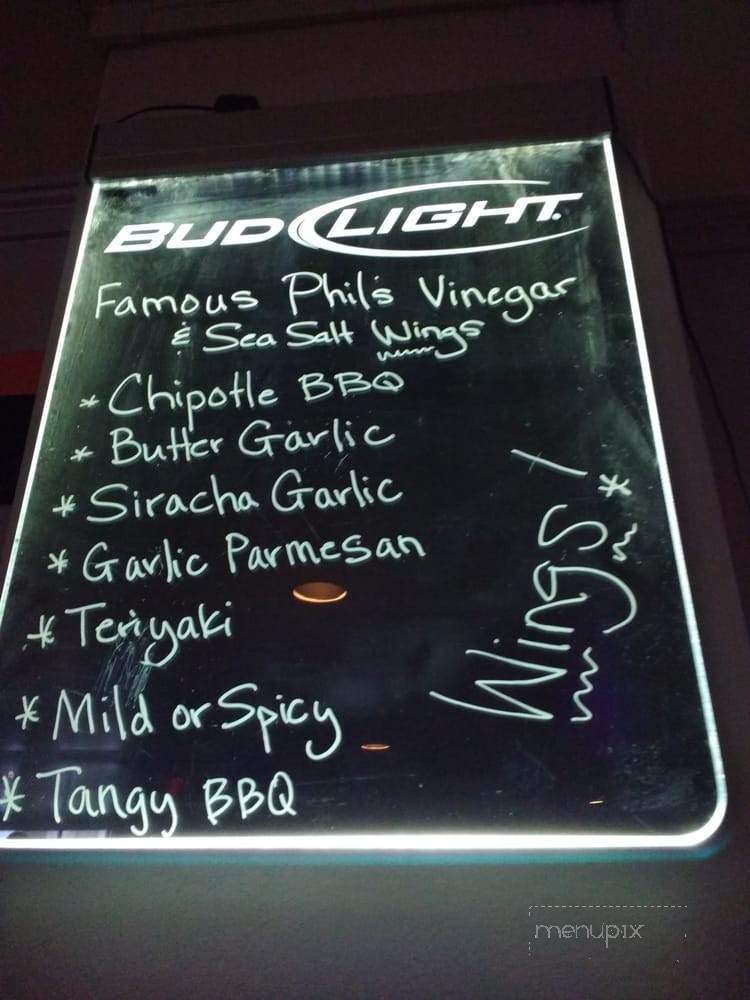 BUD LIGHT.
Famous Phil's Vinegar
& Sea Salt Wings
* Chipotle BBQ
* Butter Garlic
* Siracha Garlic
* Garlic Parmesan
* Teriyaki
* Mild or Spicy
* Tangy BBQ
Wings!
menupix